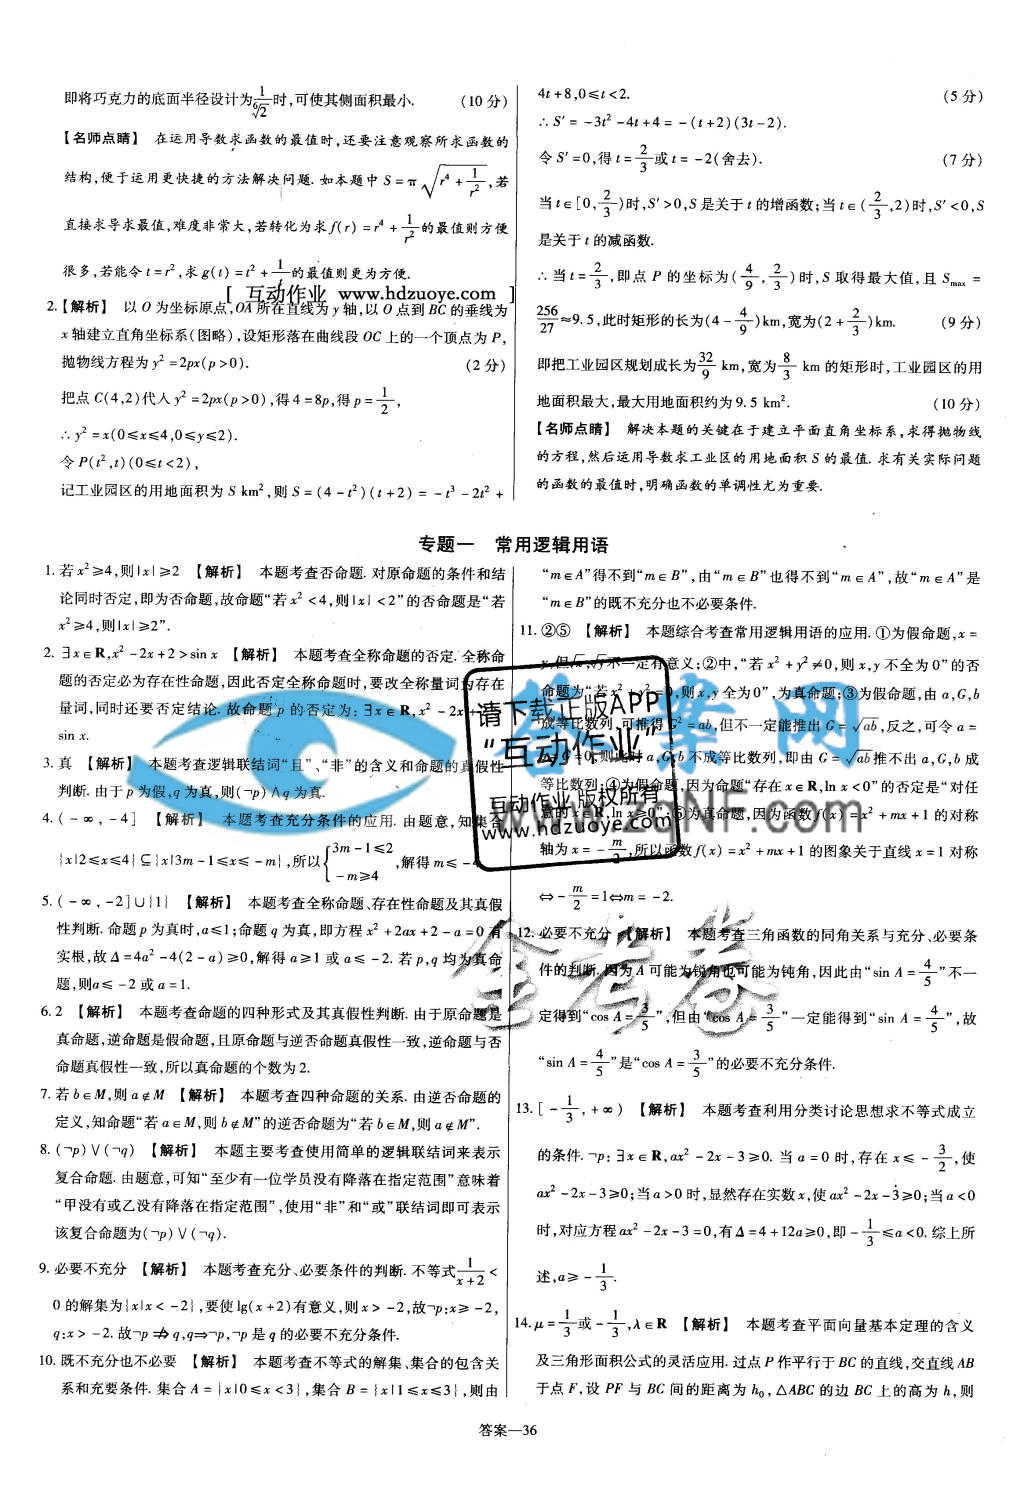 即将巧克力的底面半径设计为1/⁶√2时,可使其侧面积最小. (10分)
【名师点睛】 在运用导数求函数的最值时,还要注意观察所求函数的
结构,便于运用更快捷的方法解决问题.如本题中S=π√(r⁴+1/r²),若
直接求导求最值,难度非常大,若转化为求f(r)=r⁴+1/r²的最值则方便
很多,若能令t=r²,求g(t)=t²+1/t的最值则更为方便.
[ 互动作业 www.hdzuoye.com ]
2.【解析】 以O为坐标原点,OA所在直线为y轴,以O点到BC的垂线为
x轴建立直角坐标系(图略),设矩形落在曲线段OC上的一个顶点为P,
抛物线方程为y²=2px(p>0). (2分)
把点C(4,2)代人y²=2px(p>0),得4=8p,得p=1/2,
∴y²=x(0≤x≤4,0≤y≤2).
令P(t²,t)(0≤t<2),
记工业园区的用地面积为S km²,则S=(4-t²)(t+2)=-t³-2t²+
4t+8,0≤t<2. (5分)
∴S′=-3t²-4t+4=-(t+2)(3t-2).
令S′=0,得t=2/3或t=-2(舍去). (7分)
当t∈[0,2/3)时,S′>0,S是关于t的增函数;当t∈(2/3,2)时,S′<0,S
是关于t的减函数.
∴当t=2/3,即点P的坐标为(4/9,2/3)时,S取得最大值,且Smax=
256/27≈9.5,此时矩形的长为(4-4/9)km,宽为(2+2/3)km. (9分)
即把工业园区规划成长为32/9 km,宽为8/3 km的矩形时,工业园区的用
地面积最大,最大用地面积约为9.5 km². (10分)
【名师点睛】 解决本题的关键在于建立平面直角坐标系,求得抛物线
的方程,然后运用导数求工业区的用地面积S的最值.求有关实际问题
的函数的最值时,明确函数的单调性尤为重要.
专题一 常用逻辑用语
1.若x²≥4,则|x|≥2 【解析】 本题考查否命题.对原命题的条件和结
论同时否定,即为否命题,故命题“若x²<4,则|x|<2”的否命题是“若
x²≥4,则|x|≥2”.
2.∃x∈R,x²-2x+2>sin x 【解析】 本题考查全称命题的否定.全称命
题的否定必为存在性命题,因此否定全称命题时,要改全称量词为存在
量词,同时还要否定结论.故命题p的否定为:∃x∈R,x²-2x+
sin x.
3.真 【解析】 本题考查逻辑联结词“且”、“非”的含义和命题的真假性
判断.由于p为假,q为真,则(¬p)∧q为真.
4.(-∞,-4] 【解析】 本题考查充分条件的应用.由题意,知集合
{x|2≤x≤4}⊆{x|3m-1≤x≤-m},所以{3m-1≤2 -m≥4,解得m≤-4
5.(-∞,-2]∪{1} 【解析】 本题考查全称命题、存在性命题及其真假
性判断.命题p为真时,a≤1;命题q为真,即方程x²+2ax+2-a=0有
实根,故Δ=4a²-4(2-a)≥0,解得a≥1或a≤-2.若p,q均为真命
题,则a≤-2或a=1.
6.2 【解析】 本题考查命题的四种形式及其真假性判断.由于原命题是
真命题,逆命题是假命题,且原命题与逆否命题真假性一致,逆命题与否
命题真假性一致,所以真命题的个数为2.
7.若b∈M,则a∉M 【解析】 本题考查四种命题的关系.由逆否命题的
定义,知命题“若a∈M,则b∉M”的逆否命题为“若b∈M,则a∉M”.
8.(¬p)∨(¬q) 【解析】 本题主要考查使用简单的逻辑联结词来表示
复合命题.由题意,可知“至少有一位学员没有降落在指定范围”意味着
“甲没有或乙没有降落在指定范围”,使用“非”和“或”联结词即可表示
该复合命题为(¬p)∨(¬q).
9.必要不充分 【解析】 本题考查充分、必要条件的判断.不等式1/(x+2)<
0的解集为{x|x<-2},要使lg(x+2)有意义,则x>-2,故¬p:x≥-2,
q:x>-2.故¬p⇏q,q⇒¬p,¬p是q的必要不充分条件.
10.既不充分也不必要 【解析】 本题考查不等式的解集、集合的包含关
系和充要条件.集合A={x|0≤x<3},集合B={x|1≤x≤3},则由
“m∈A”得不到“m∈B”,由“m∈B”也得不到“m∈A”,故“m∈A”是
“m∈B”的既不充分也不必要条件.
11.②⑤ 【解析】 本题综合考查常用逻辑用语的应用.①为假命题,x=
y,但√x,√y不一定有意义;②中,“若x²+y²≠0,则x,y不全为0”的否
命题为“若x²+y²=0,则x,y全为0”,为真命题;③为假命题,由a,G,b
成等比数列,可推得G²=ab,但不一定能推出G=√ab,反之,可令a=
G=0,则此时a,G,b不成等比数列,即由G=√ab推不出a,G,b成
等比数列;④为假命题,因为命题“存在x∈R,ln x<0”的否定是“对任
意的x∈R,ln x≥0”;⑤为真命题,因为函数f(x)=x²+mx+1的对称
轴为x=-m/2,所以函数f(x)=x²+mx+1的图象关于直线x=1对称
⇔-m/2=1⇔m=-2.
12.必要不充分 【解析】 本题考查三角函数的同角关系与充分、必要条
件的判断.因为A可能为锐角也可能为钝角,因此由“sin A=4/5”不一
定得到“cos A=3/5”,但由“cos A=3/5”一定能得到“sin A=4/5”,故
“sin A=4/5”是“cos A=3/5”的必要不充分条件.
13.[-1/3,+∞) 【解析】 本题考查利用分类讨论思想求不等式成立
的条件.¬p:∃x∈R,ax²-2x-3≥0.当a=0时,存在x≤-3/2,使
ax²-2x-3≥0;当a>0时,显然存在实数x,使ax²-2x-3≥0;当a<0
时,对应方程ax²-2x-3=0,有Δ=4+12a≥0,即-1/3≤a<0.综上所
述,a≥-1/3.
14.μ=1/3或-1/3,λ∈R 【解析】 本题考查平面向量基本定理的含义
及三角形面积公式的灵活应用.过点P作平行于BC的直线,交直线AB
于点F,设PF与BC间的距离为h₀,△ABC的边BC上的高为h,则
请下载正版APP
“互动作业”
互动作业 版权所有
www.hdzuoye.com
金考卷
答案—36